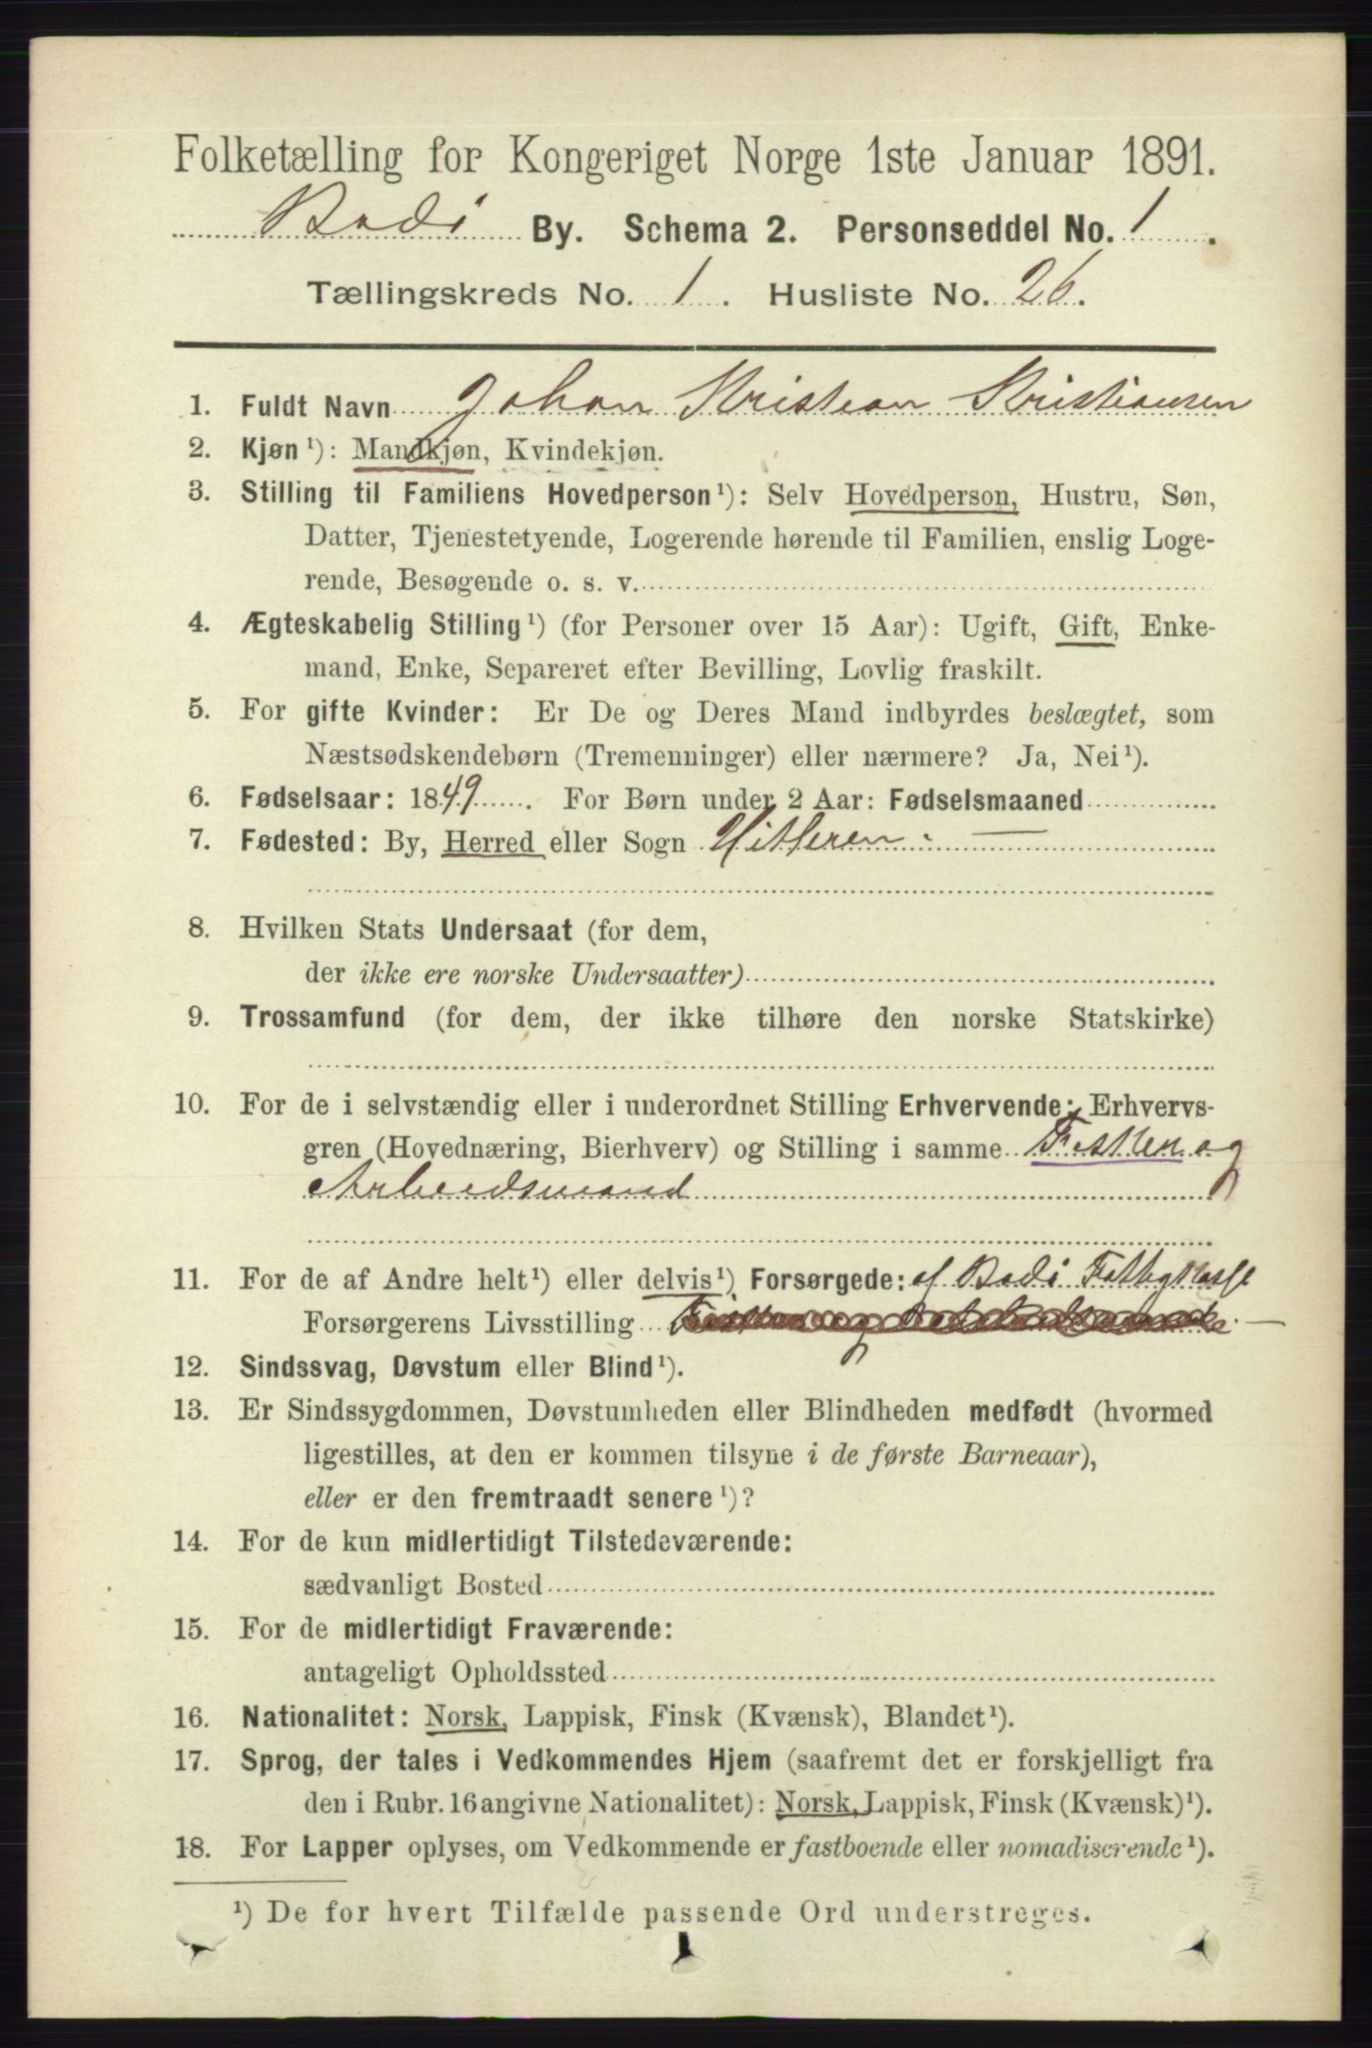 Folketælling for Kongeriget Norge 1ste Januar 1891.
Bodø By. Schema 2. Personseddel No. 1.
Tællingskreds No. 1. Husliste No. 26.
1. Fuldt Navn Johan Kristian Kristiansen
2. Kjøn ¹): Mandkjøn, Kvindekjøn.
3. Stilling til Familiens Hovedperson ¹): Selv Hovedperson, Hustru, Søn,
Datter, Tjenestetyende, Logerende hørende til Familien, enslig Loge-
rende, Besøgende o. s. v.
4. Ægteskabelig Stilling ¹) (for Personer over 15 Aar): Ugift, Gift, Enke-
mand, Enke, Separeret efter Bevilling, Lovlig fraskilt.
5. For gifte Kvinder: Er De og Deres Mand indbyrdes beslægtet, som
Næstsødskendebørn (Tremenninger) eller nærmere? Ja, Nei ¹).
6. Fødselsaar: 1849. For Børn under 2 Aar: Fødselsmaaned
7. Fødested: By, Herred eller Sogn Hitteren.
8. Hvilken Stats Undersaat (for dem,
der ikke ere norske Undersaatter)
9. Trossamfund (for dem, der ikke tilhøre den norske Statskirke)
10. For de i selvstændig eller i underordnet Stilling Erhvervende: Erhvervs-
gren (Hovednæring, Bierhverv) og Stilling i samme Fisker og
Arbeidsmand
11. For de af Andre helt ¹) eller delvis ¹) Forsørgede: af Bodø Fattigkasse
Forsørgerens Livsstilling
12. Sindssvag, Døvstum eller Blind ¹).
13. Er Sindssygdommen, Døvstumheden eller Blindheden medfødt (hvormed
ligestilles, at den er kommen tilsyne i de første Barneaar),
eller er den fremtraadt senere ¹)?
14. For de kun midlertidigt Tilstedeværende:
sædvanligt Bosted
15. For de midlertidigt Fraværende:
antageligt Opholdssted
16. Nationalitet: Norsk, Lappisk, Finsk (Kvænsk), Blandet ¹).
17. Sprog, der tales i Vedkommendes Hjem (saafremt det er forskjelligt fra
den i Rubr. 16 angivne Nationalitet): Norsk, Lappisk, Finsk (Kvænsk) ¹).
18. For Lapper oplyses, om Vedkommende er fastboende eller nomadiserende ¹).
¹) De for hvert Tilfælde passende Ord understreges.